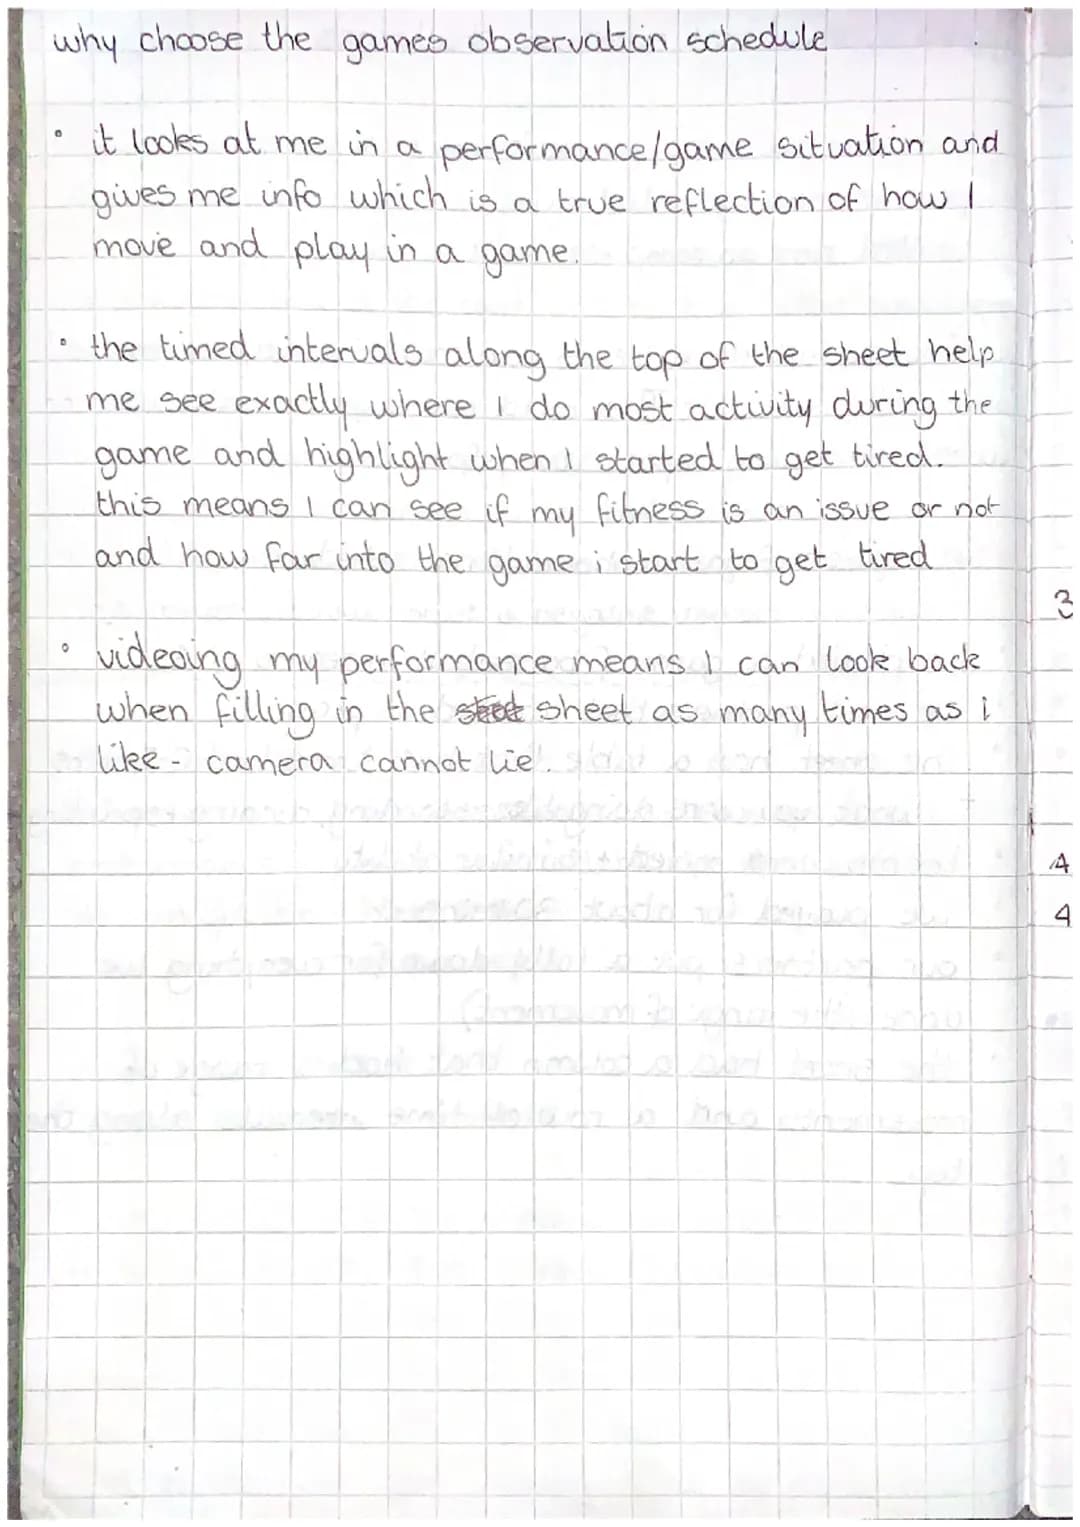 why choose the games observation schedule
• it looks at me in a performance/game situation and
gives me info which is a true reflection of how I
move and play in a game.
• the timed intervals along the top of the sheet help
me see exactly where I do most activity during the
game and highlight when I started to get tired.
this means I can see if my fitness is an issue or not
and how far into the game i start to get tired
• videoing my performance means I can look back
when filling in the sheet as many times as i
like - camera cannot lie.
3
4
4